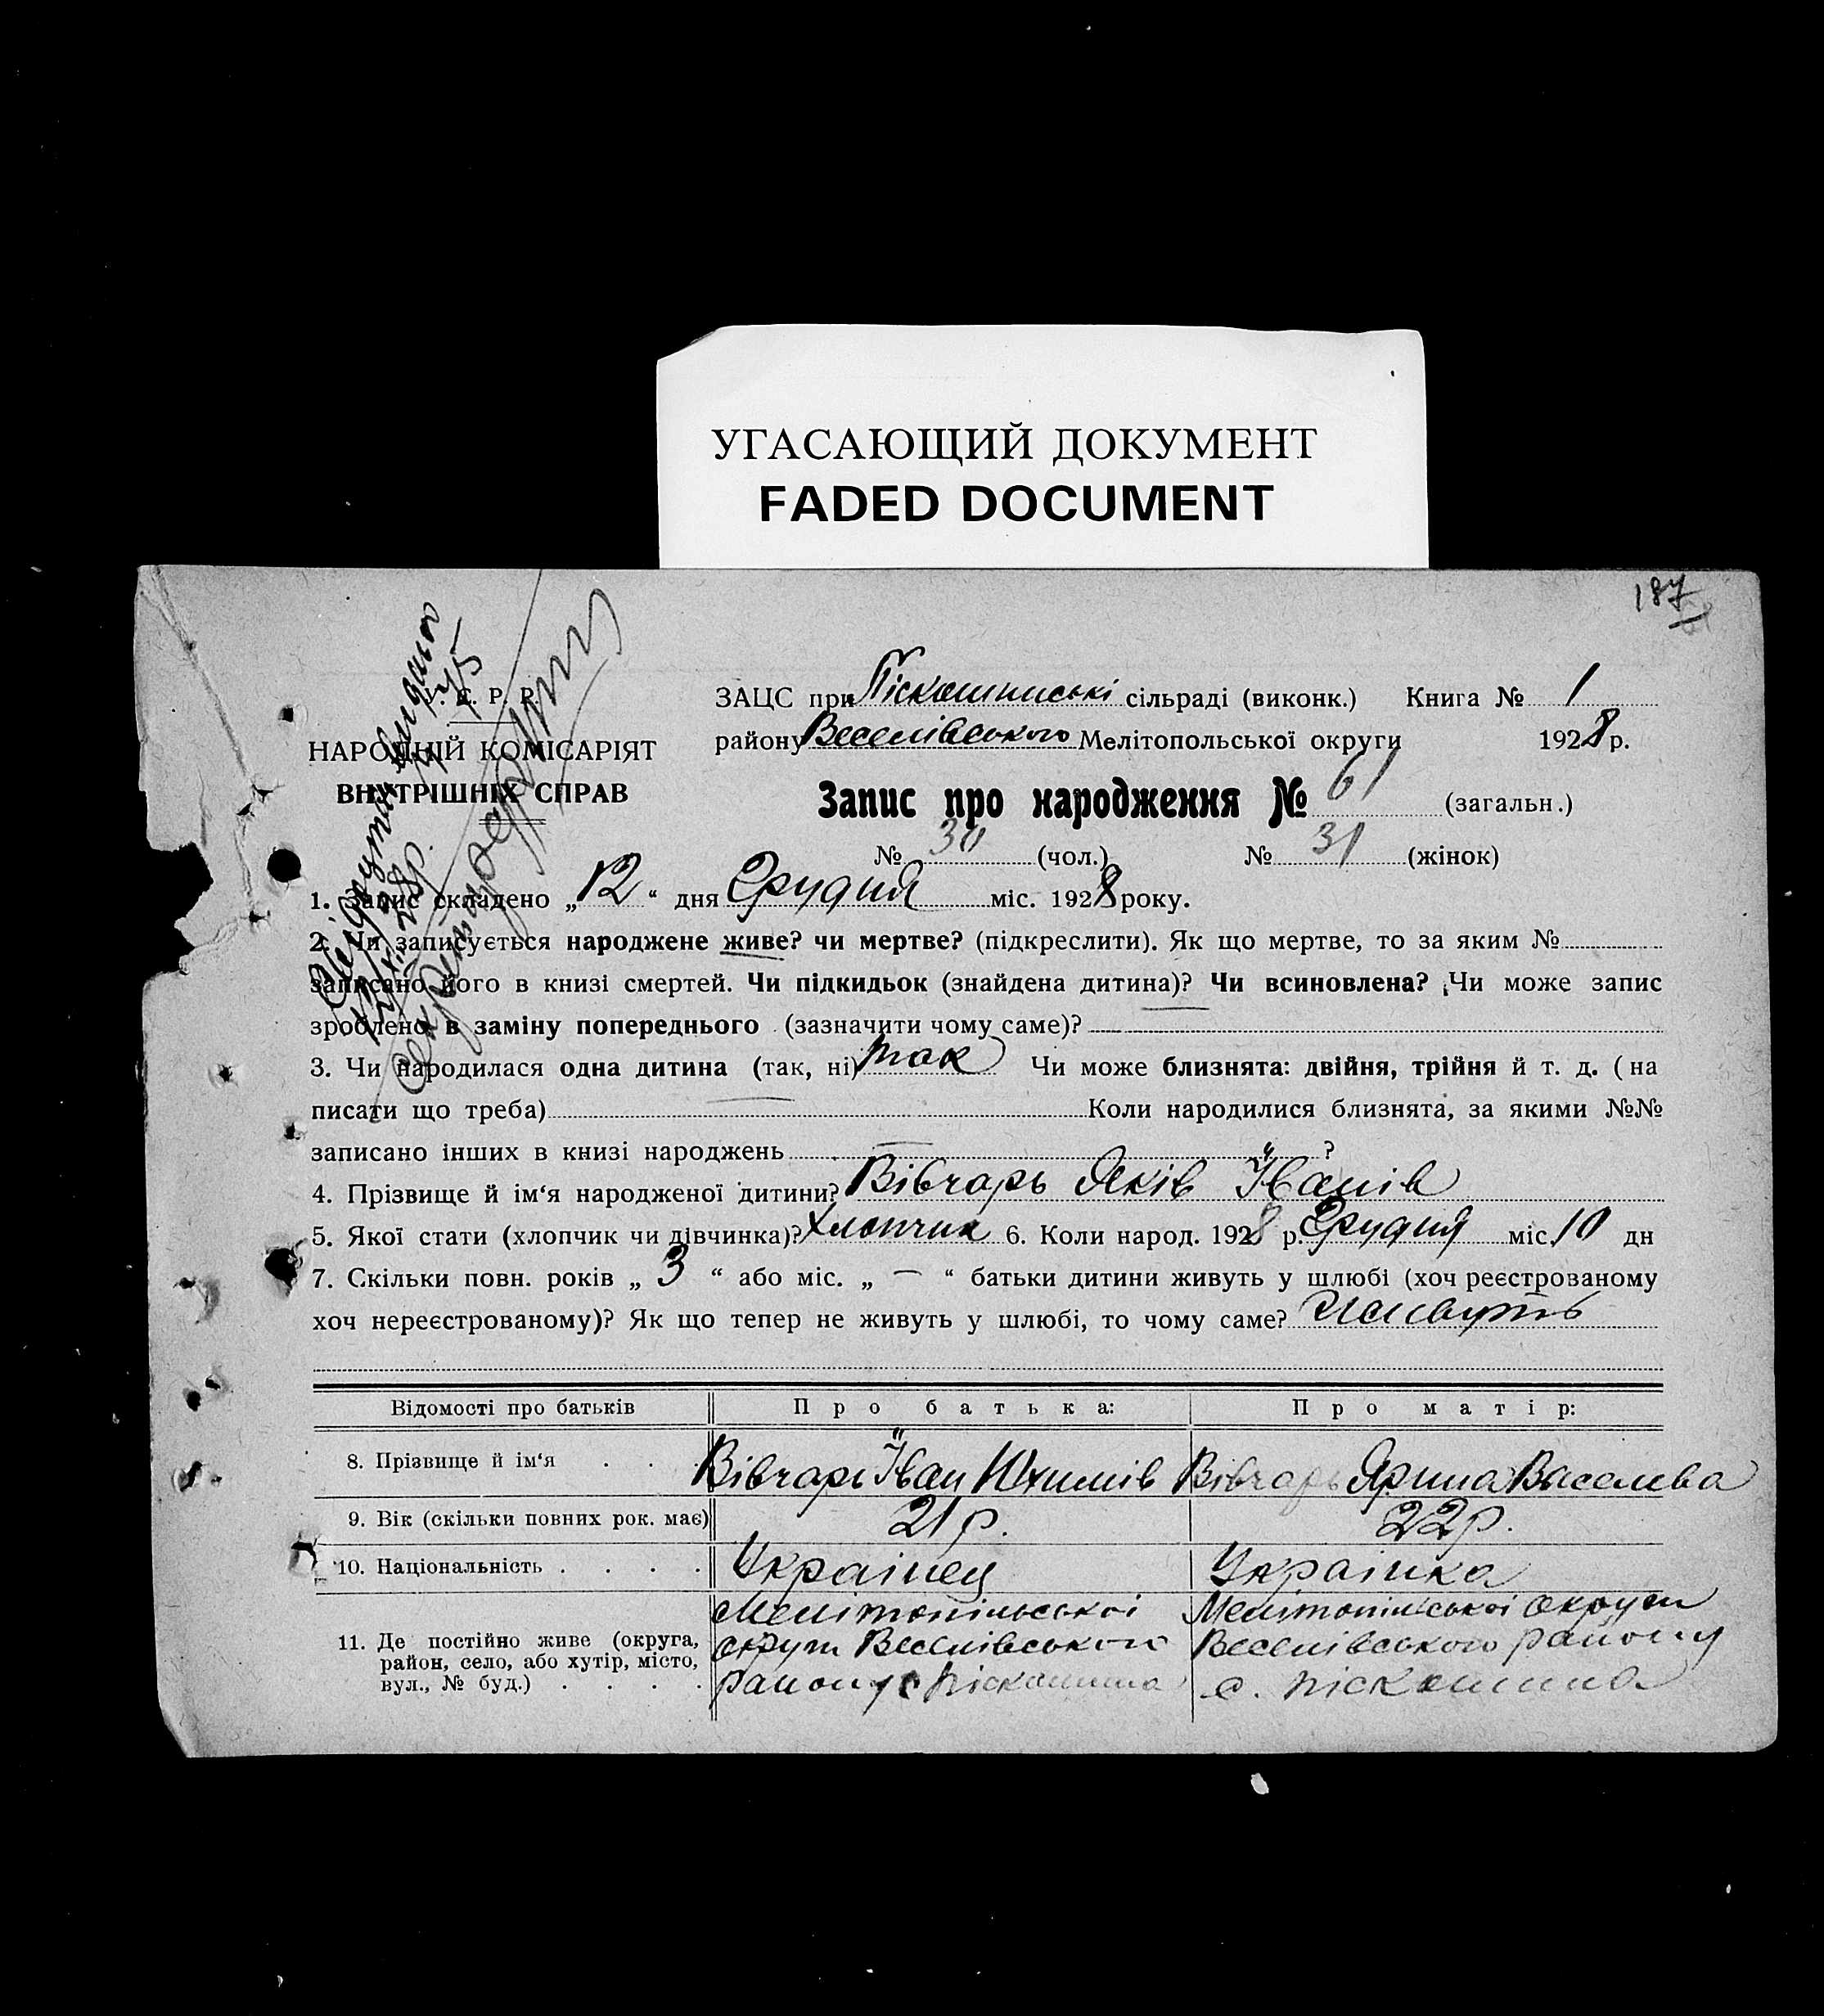 УГАСАЮЩИЙ ДОКУМЕНТ
FADED DOCUMENT
187
У. С. Р. Р.
НАРОДНІЙ КОМІСАРІЯТ
ВНУТРІШНІХ СПРАВ
ЗАЦС при Піскошинські сільраді (виконк.) Книга № 1
району Веселівського Мелітопольської округи 1928 р.
Запис про народження № 61 (загальн.)
№ 30 (чол.) № 31 (жінок)
1. Запис складено „12“ дня Грудня міс. 1928 року.
2. Чи записується народжене живе? чи мертве? (підкреслити). Як що мертве, то за яким №
записано його в книзі смертей. Чи підкидьок (знайдена дитина)? Чи всиновлена? Чи може запис
зроблено в заміну попереднього (зазначити чому саме)?
3. Чи народилася одна дитина (так, ні) так Чи може близнята: двійня, трійня й т. д. (на
писати що треба) — Коли народилися близнята, за якими №№
записано інших в книзі народжень — ?
4. Прізвище й ім‘я народженої дитини? Вівчарь Яків Їванів
5. Якої стати (хлопчик чи дівчинка)? Хлопчик 6. Коли народ. 1928 р. Грудня міс. 10 дн
7. Скільки повн. років „ 3 “ або міс. „ — “ батьки дитини живуть у шлюбі (хоч реєстрованому
хоч нереєстрованому)? Як що тепер не живуть у шлюбі, то чому саме?
Відомості про батьків Про батька: Про матір:
8. Прізвище й ім‘я . . . Вівчарь Їван Юхимів Вівчарь Ярина Васелева
9. Вік (скільки повних рок. має) 21 р. 22 р.
10. Національність . . . . Українец Українка
11. Де постійно живе (округа, район, село, або хутір, місто, вул., № буд.) . . . .
Мелітопільської округи Веселівського району с Піскошино
Мелітопільської округи Веселівського району с. Піскошино